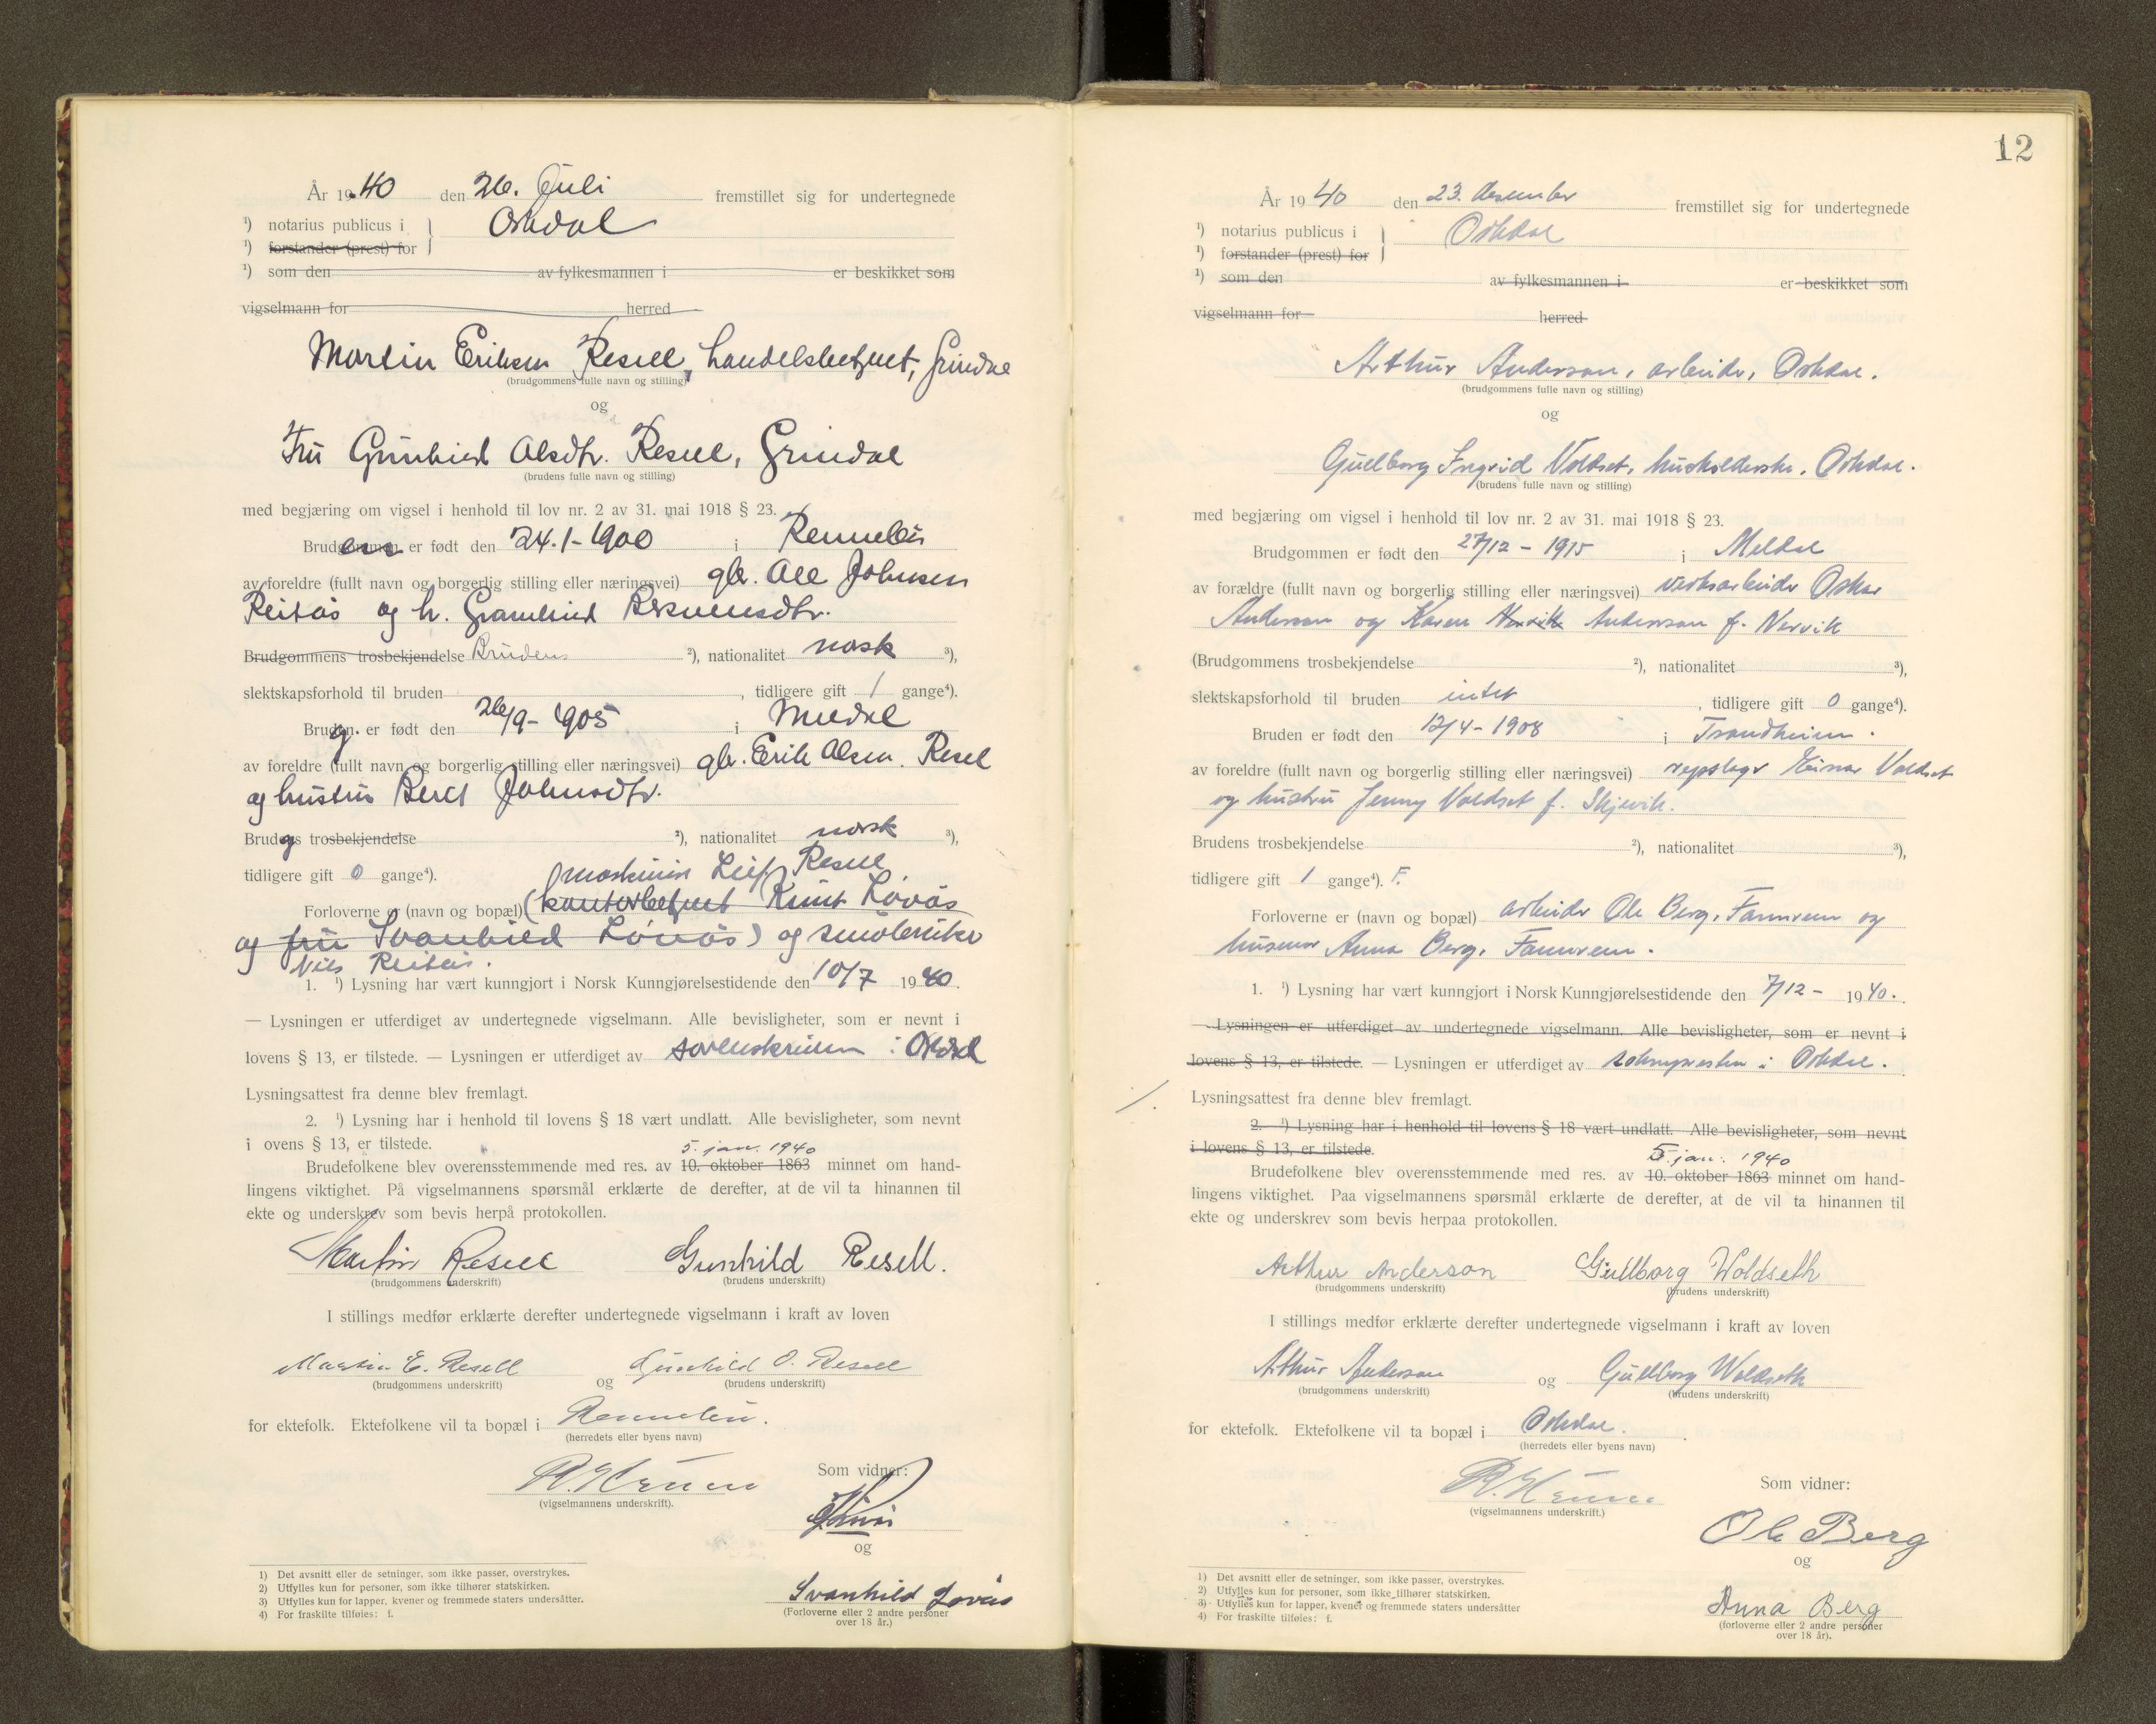 År 1940 den 26. Juli fremstillet sig for undertegnede
¹) notarius publicus i Orkdal
¹) forstander (prest) for
¹) som den av fylkesmannen i er beskikket som
vigselmann for herred
Martin Eriksen Resell, handelsbetjent, Grindal
(brudgommens fulle navn og stilling)
og
Fru Gunhild Olsdtr. Resell, Grindal
(brudens fulle navn og stilling)
med begjæring om vigsel i henhold til lov nr. 2 av 31. mai 1918 § 23.
Bruden er født den 24.1-1900 i Rennebu
av foreldre (fullt navn og borgerlig stilling eller næringsvei) gbr. Ole Johnsen
Reitås og h.
Brudgommens trosbekjendelse Brudens ²), nationalitet norsk ³),
slektskapsforhold til bruden , tidligere gift 1 gange⁴).
Brudg. er født den 26/9-1905 i Meldal
av foreldre (fullt navn og borgerlig stilling eller næringsvei) gbr. Erik Olsen Resell
og hustru Beret Johnsdtr.
Brudgs trosbekjendelse ²), nationalitet norsk ³),
tidligere gift 0 gange⁴). maskinist Leif Resell
Forloverne er (navn og bopæl) (kontorbetjent Knut Løvås
og fru Svanhild Løvås) og småbruker
Nils Reitås.
1. ¹) Lysning har vært kunngjort i Norsk Kunngjørelsestidende den 10/7 1940.
— Lysningen er utferdiget av undertegnede vigselmann. Alle bevisligheter, som er nevnt i
lovens § 13, er tilstede. — Lysningen er utferdiget av sorenskriveren i Orkdal
Lysningsattest fra denne blev fremlagt.
2. ¹) Lysning har i henhold til lovens § 18 vært undlatt. Alle bevisligheter, som nevnt
i ovens § 13, er tilstede.
5. jan. 1940
Brudefolkene blev overensstemmende med res. av 10. oktober 1863 minnet om hand-
lingens viktighet. På vigselmannens spørsmål erklærte de derefter, at de vil ta hinannen til
ekte og underskrev som bevis herpå protokollen.
Martin Resell Gunhild Resell.
(brudgommens underskrift) (brudens underskrift)
I stillings medfør erklærte derefter undertegnede vigselmann i kraft av loven
Martin E. Resell og Gunhild O. Resell
(brudgommens underskrift) (brudens underskrift)
for ektefolk. Ektefolkene vil ta bopæl i Rennebu.
(herredets eller byens navn)
Som vidner:
(vigselmannens underskrift).
og
Svanhild Løvås
(Forloverne eller 2 andre personer
over 18 år.)
1) Det avsnitt eller de setninger, som ikke passer, overstrykes.
2) Utfylles kun for personer, som ikke tilhører statskirken.
3) Utfylles kun for lapper, kvener og fremmede staters undersåtter.
4) For fraskilte tilføies: f.
12
År 1940 den 23. desember fremstillet sig for undertegnede
¹) notarius publicus i Orkdal
¹) forstander (prest) for
¹) som den av fylkesmannen i er beskikket som
vigselmann for herred
Arthur Anderson, arbeider, Orkdal.
(brudgommens fulle navn og stilling)
og
Gullborg Ingrid Voldset, husholderske, Orkdal.
(brudens fulle navn og stilling)
med begjæring om vigsel i henhold til lov nr. 2 av 31. mai 1918 § 23.
Brudgommen er født den 27/12-1915 i Meldal
av forældre (fullt navn og borgerlig stilling eller næringsvei) verksarbeider Oskar
Anderson og Karen Nervik Anderson f. Nervik
(Brudgommens trosbekjendelse ²), nationalitet ³),
slektskapsforhold til bruden intet , tidligere gift 0 gange⁴).
Bruden er født den 12/4-1908 i Trondheim.
av foreldre (fullt navn og borgerlig stilling eller næringsvei) repslager Einar Voldset
og hustru Jenny Voldset f. Skjevik.
Brudens trosbekjendelse ²), nationalitet ³),
tidligere gift 1 gange⁴). F.
Forloverne er (navn og bopæl) arbeider Ole Berg, Fannrem og
husmor Anna Berg, Fannrem.
1. ¹) Lysning har vært kunngjort i Norsk Kunngjørelsestidende den 7/12- 1940.
— Lysningen er utferdiget av undertegnede vigselmann. Alle bevisligheter, som er nevnt i
lovens § 13, er tilstede. — Lysningen er utferdiget av soknepresten i Orkdal.
Lysningsattest fra denne blev fremlagt.
2. ¹) Lysning har i henhold til lovens § 18 vært undlatt. Alle bevisligheter, som nevnt
i lovens § 13, er tilstede.
5. jan. 1940
Brudefolkene blev overensstemmende med res. av 10. oktober 1863 minnet om hand-
lingens viktighet. Paa vigselmannens spørsmål erklærte de derefter, at de vil ta hinannen til
ekte og underskrev som bevis herpaa protokollen.
Arthur Anderson Gullborg Woldseth
(brudgommens underskrift) (brudens underskrift)
I stillings medfør erklærte derefter undertegnede vigselmann i kraft av loven
Arthur Anderson og Gullborg Woldseth
(brudgommens underskrift) (brudens underskrift)
for ektefolk. Ektefolkene vil ta bopæl i Orkdal.
(herredets eller byens navn)
Som vidner:
(vigselmannens underskrift.)
Ole Berg
og
Anna Berg
(forloverne eller 2 andre personer
over 18 år).
1) Det avsnitt eller de setninger, som ikke passer, overstrykes.
2) Utfylles kun for personer, som ikke tilhører statskirken.
3) Utfylles kun for lapper, kvener og fremmede staters undersåtter
4) For fraskilte tilføies: f.